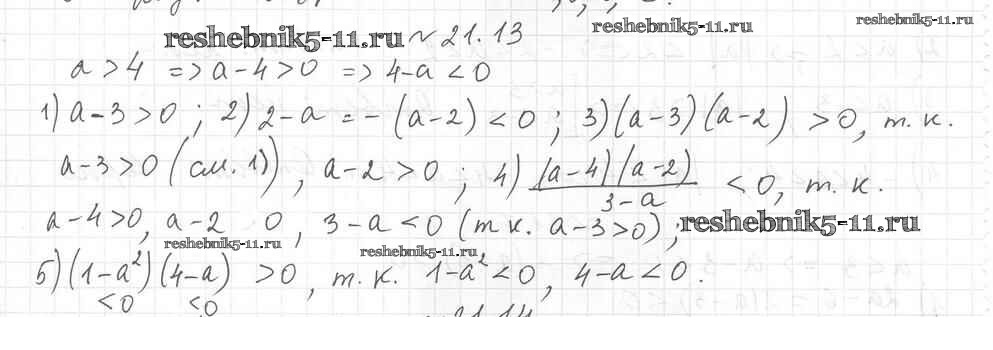 reshebnik5-11.ru № 21.13 reshebnik5-11.ru reshebnik5-11.ru
a > 4 => a - 4 > 0 => 4 - a < 0
1) a - 3 > 0 ; 2) 2 - a = - (a - 2) < 0 ; 3) (a - 3) (a - 2) > 0, т. к.
a - 3 > 0 (см. 1)), a - 2 > 0 ; 4) (a - 4) (a - 2) / 3 - a < 0, т. к.
a - 4 > 0, a - 2 0, 3 - a < 0 (т к. a - 3 > 0) ; reshebnik5-11.ru
reshebnik5-11.ru reshebnik5-11.ru
5) (1 - a²) (4 - a) > 0, т. к. 1 - a² < 0, 4 - a < 0.
< 0 < 0
21.14